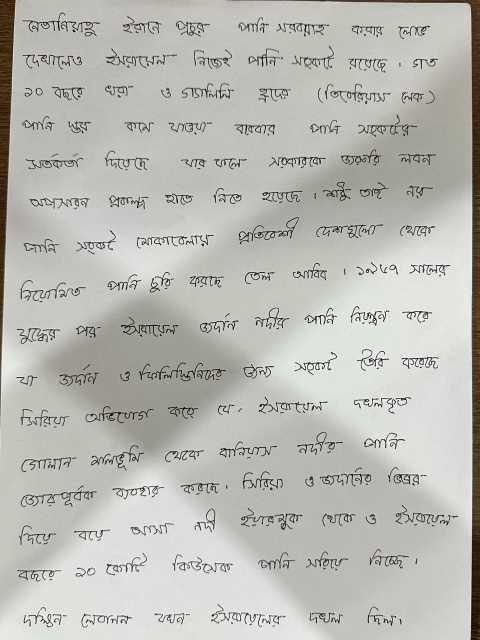 নেতানিয়াহু ইরানে প্রচুর পানি সরবরাহ করার লোভ
দেখালেও ইসরায়েল নিজেই পানি সংকটে রয়েছে। গত
১০ বছরে খরা ও গ্যালিলি হ্রদের (তিবেরিয়াস লেক)
পানি স্তর কমে যাওয়া বারবার পানি সংকটের
সতর্কতা দিয়েছে যার ফলে সরকারকে জরুরি লবন
অপসারন প্রকল্প হাতে নিতে হয়েছে। শুধু তাই নয়
পানি সংকট মোকাবেলায় প্রতিবেশী দেশগুলো থেকে
নিয়োমিত পানি চুরি করছে তেল আবিব। ১৯৬৭ সালের
যুদ্ধের পর ইসরায়েল জর্দান নদীর পানি নিয়ন্ত্রন করে
যা জর্দান ও ফিলিস্তিনিদের জন্য সংকট তৈরি করেছে
সিরিয়া অভিযোগ করে যে, ইসরায়েল দখলকৃত
গোলান মালভূমি থেকে বানিয়াস নদীর পানি
জোরপূর্বক ব্যবহার করছে। সিরিয়া ও জর্দানের ভিতর
দিয়ে বয়ে আসা নদী ইয়ারমুক থেকে ও ইসরায়েল
বছরে ১০ কোটি কিউসেক পানি সরিয়ে নিচ্ছে।
দক্ষিন লেবানন যখন ইসরায়েলের দখল ছিল।